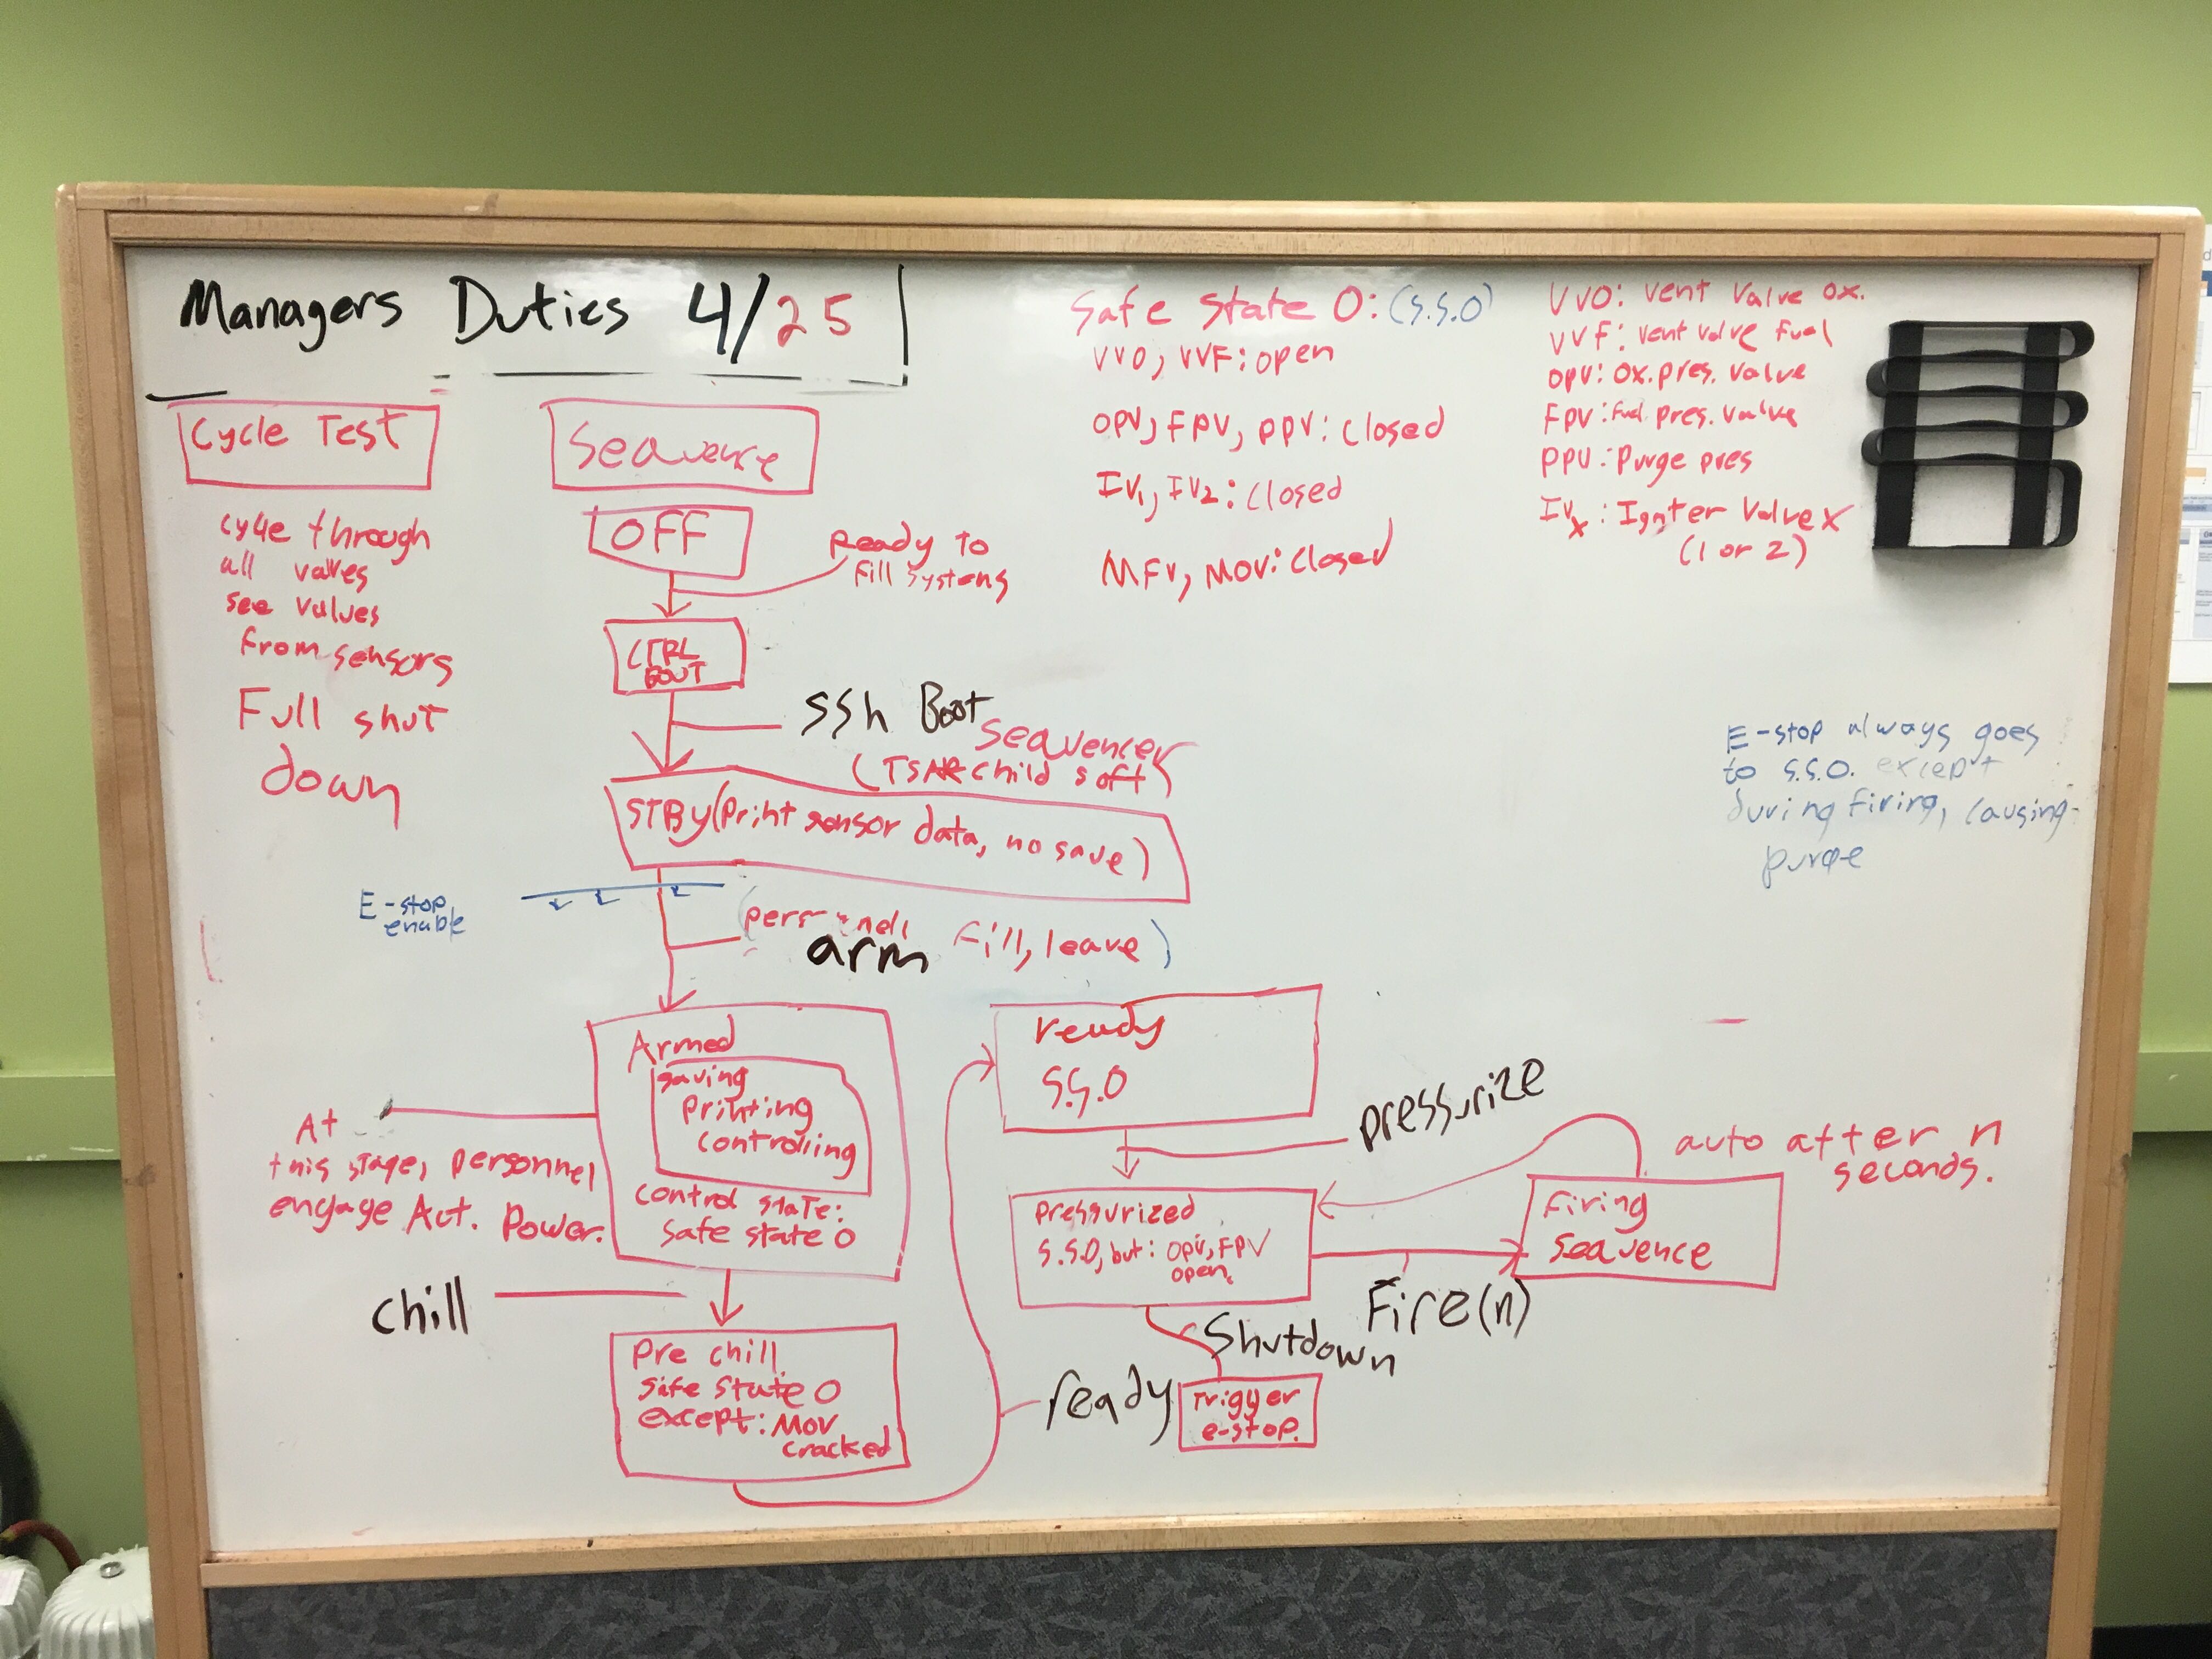 Managers Duties 4/25
Cycle Test
cycle through
all valves
see values
from sensors
Full shut
down
Sequence
OFF
Ready to
fill systems
CTRL
BOUT
SSh Boot
Sequencer
(TSAR child soft)
STBY (Print sensor data, no save)
E-stop
enable
fill, leave)
arm
Armed
saving
printing
controlling
control state:
safe state 0
At
this stage, personnel
engage Act. Power.
chill
Pre chill
safe state 0
except: MOV
cracked
ready
ready
S.S.0
pressurize
pressurized
S.S.0, but: OPV, FPV
open.
Shutdown
Trigger
e-stop.
Fire(n)
firing
sequence
auto after n
seconds.
Safe State 0: (S.S.0)
VVO, VVF: open
OPV, FPV, PPV: Closed
IV1, IV2: Closed
MFV, MOV: Closed
VVO: Vent Valve Ox.
VVF: Vent Valve fuel
OPV: Ox. pres. valve
FPV: Fuel pres. valve
PPV: Purge pres
IVx: Ignter Valve X
(1 or 2)
E-stop always goes
to S.S.O. except
during firing, causing
purge